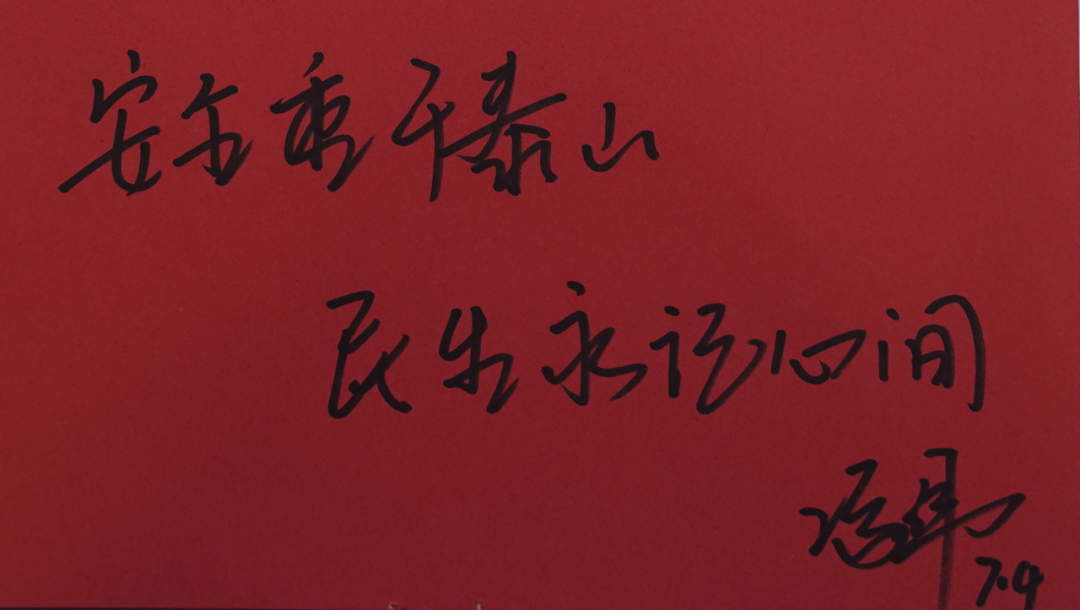 安全重于泰山
民生永记心间
7.9